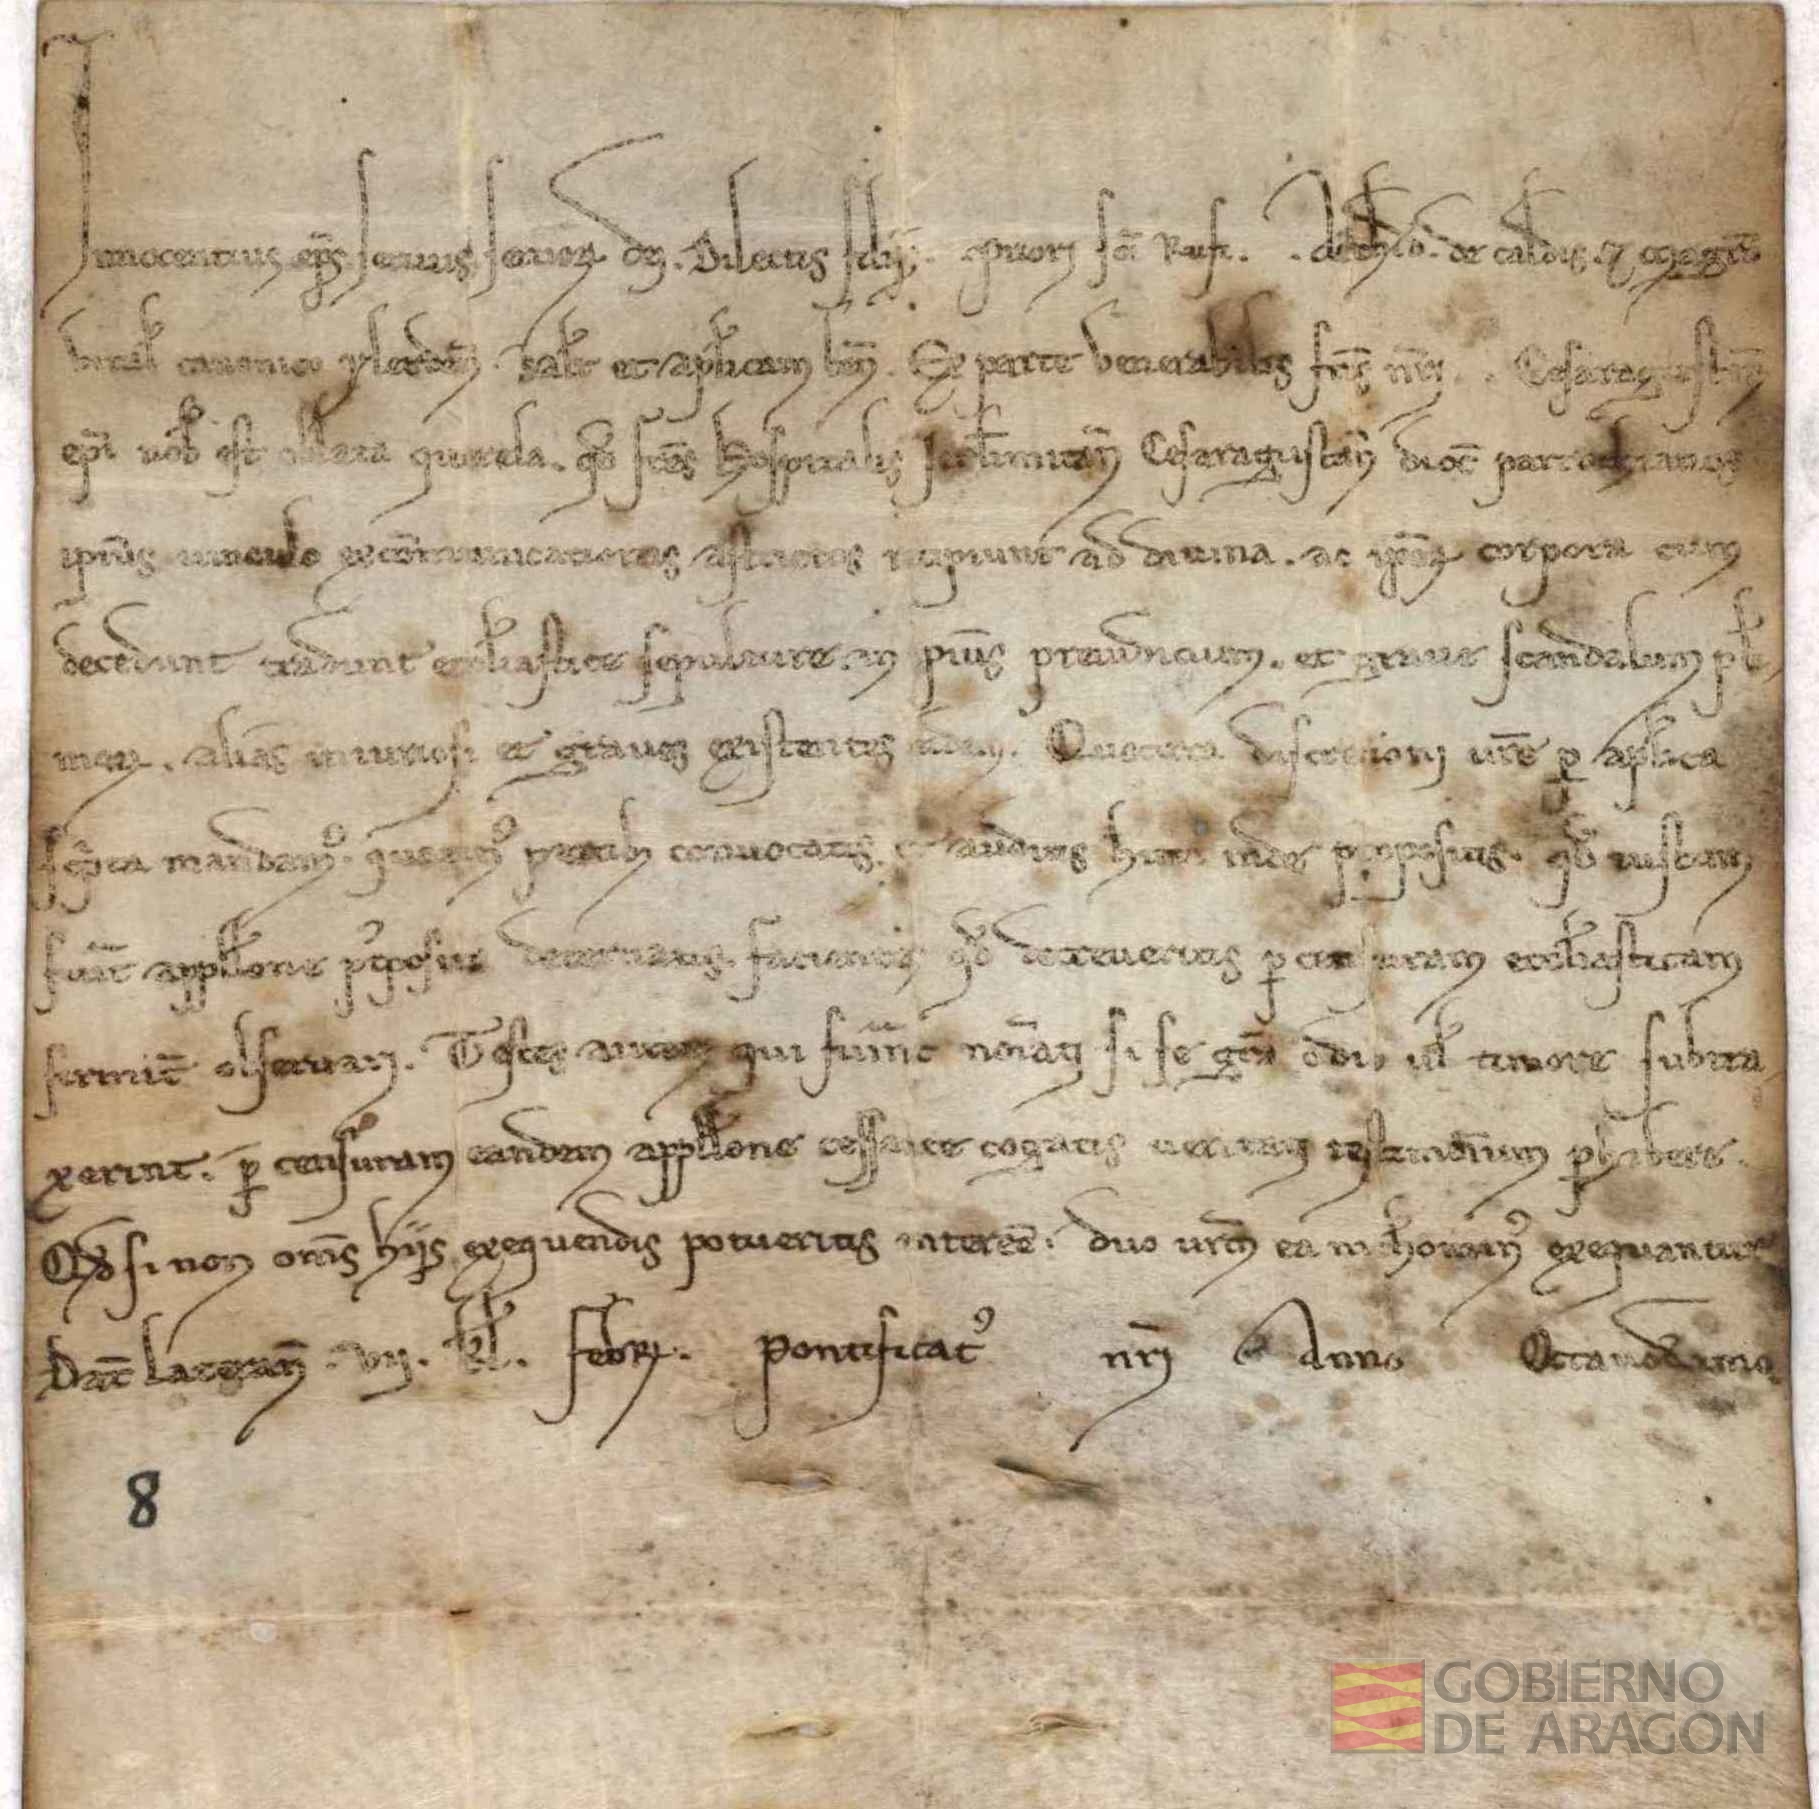 Innocentius ep̄s seruus seruoꝝ dei. Dilectis filiis. Priori sc̄i Rufi. . Archid. de Caldis. ⁊ magr̄o
canonico ylerdeñ. Salt̄ et ap̄licam beñ. Ex parte venerabilis fr̄is nr̄i . . Cesaraugustañ
ep̄i nob̄ est oblata querela. qđ fr̄es hospitalis Ierl̄imitañ Cesaraugustañ dioc̄ parrochianos
ip̄ius uinculo exco̅municationis astrictos recipiunt ad diuina. ac ip̄oꝝ corpora cum
decedunt tradunt eccl̄iastice sepulture. in p̄ius preiudicium. et graue scandalum pl̄
moꝝ. alias iniuriosi et graues existentes eidem. Quocirca discretioni ur̄e ꝑ ap̄lica
sc̄pta mandamꝰ. quatinꝰ partib; conuocatis. et auditis hinc inde ꝓpositis. qđ iustum
fuāt appll̄one p̄tposita decernatis. facientes qđ decreueritis ꝑ censuram eccl̄iasticam
firmit̄ obseruari. Testes autem qui fuīnt noīati si se gr̄a odio ul̄ timore subtra
xerint. ꝑ censuram eandem appll̄one cessante cogatis ueritati testimo̅ium ꝑhibere.
Qđ si non om̄s hiis exequendis potueritis interee̅. duo ur̄m ea nichominꝰ exequantur
Dat̄ Laterañ. vij. kl̄. febr̄. Pontificatꝰ nr̄i Anno Octauodecimo.
8
GOBIERNO
DE ARAGON